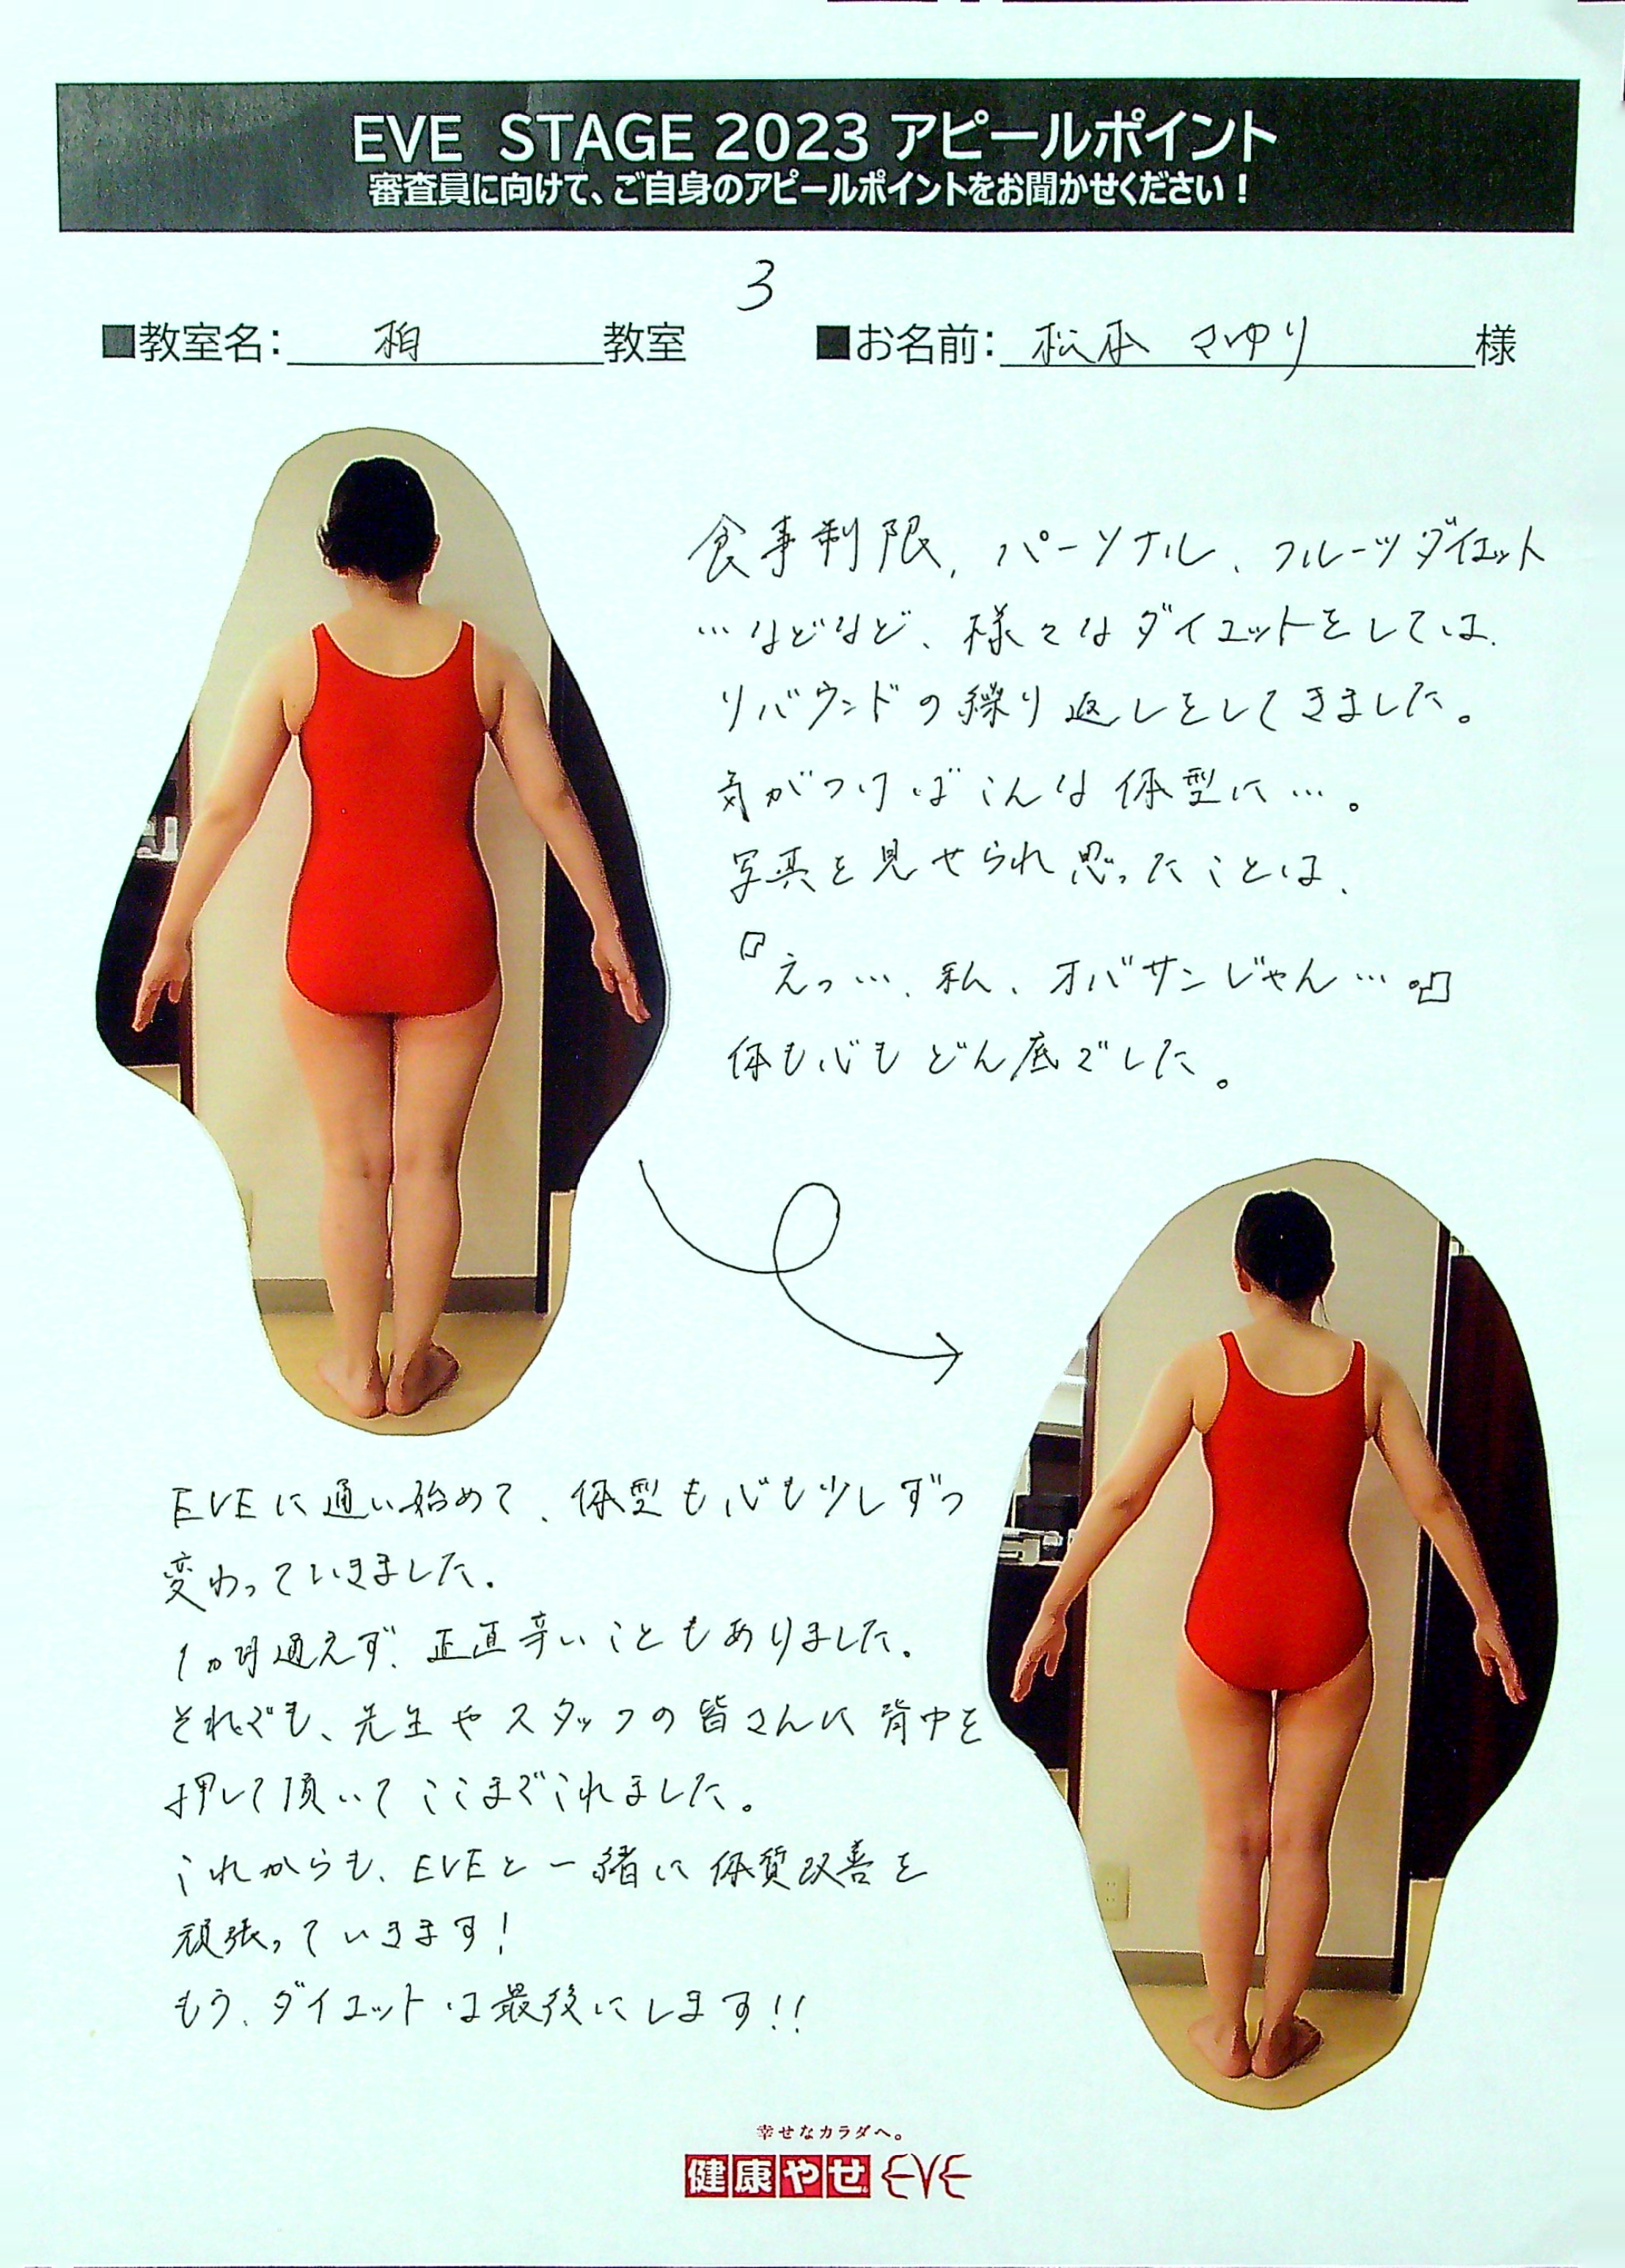 EVE STAGE 2023 アピールポイント
審査員に向けて、ご自身のアピールポイントをお聞かせください！
3
■教室名： 柏 教室 ■お名前： 松本 さゆり 様
食事制限、パーソナル、フルーツダイエット
…などなど、様々なダイエットをしては、
リバウンドの繰り返しをしてきました。
気がつけばこんな体型に…。
写真を見せられ思ったことは、
『えっ…、私、オバサンじゃん…。』
体も心もどん底でした。
EVEに通い始めて、体型も心も少しずつ
変わっていきました。
1ヵ月通えず、正直辛いこともありました。
それでも、先生やスタッフの皆さんに背中を
押して頂いてここまでこれました。
これからも、EVEと一緒に体質改善を
頑張っていきます！
もう、ダイエットは最後にします!!
幸せなカラダへ。
健康やせ EVE